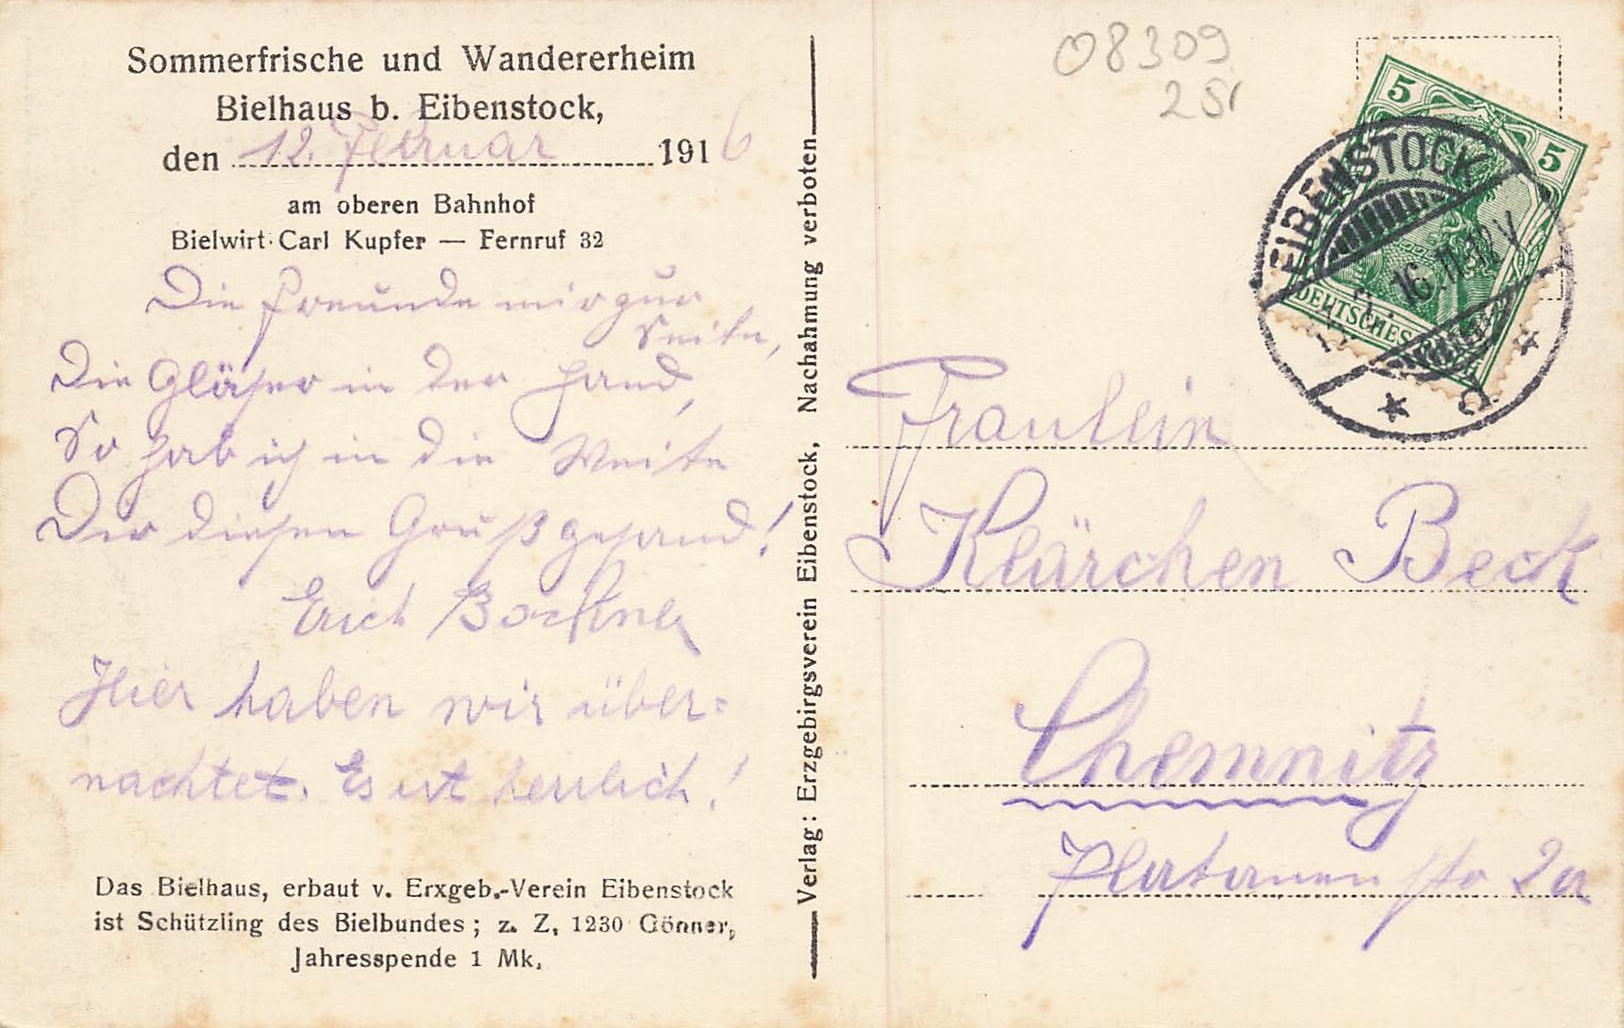 Sommerfrische und Wandererheim
Bielhaus b. Eibenstock,
den 12. Februar 1916
am oberen Bahnhof
Bielwirt Carl Kupfer — Fernruf 32
Die Freunde mir zur
Seite,
Die Gläser in der Hand,
So hab ich in die Weite
Dir diesen Gruß gesand!
Erich
Hier haben wir über-
nachtet. Es ist herrlich!
Das Bielhaus, erbaut v. Erxgeb.-Verein Eibenstock
ist Schützling des Bielbundes; z. Z. 1230 Gönner,
Jahresspende 1 Mk.
Verlag: Erzgebirgsverein Eibenstock, Nachahmung verboten
08309
25
5
5
DEUTSCHES
EIBENSTOCK
2. 16. 11-12 V
Fräulein
Klärchen Beck
Chemnitz
Platanenstr 2a